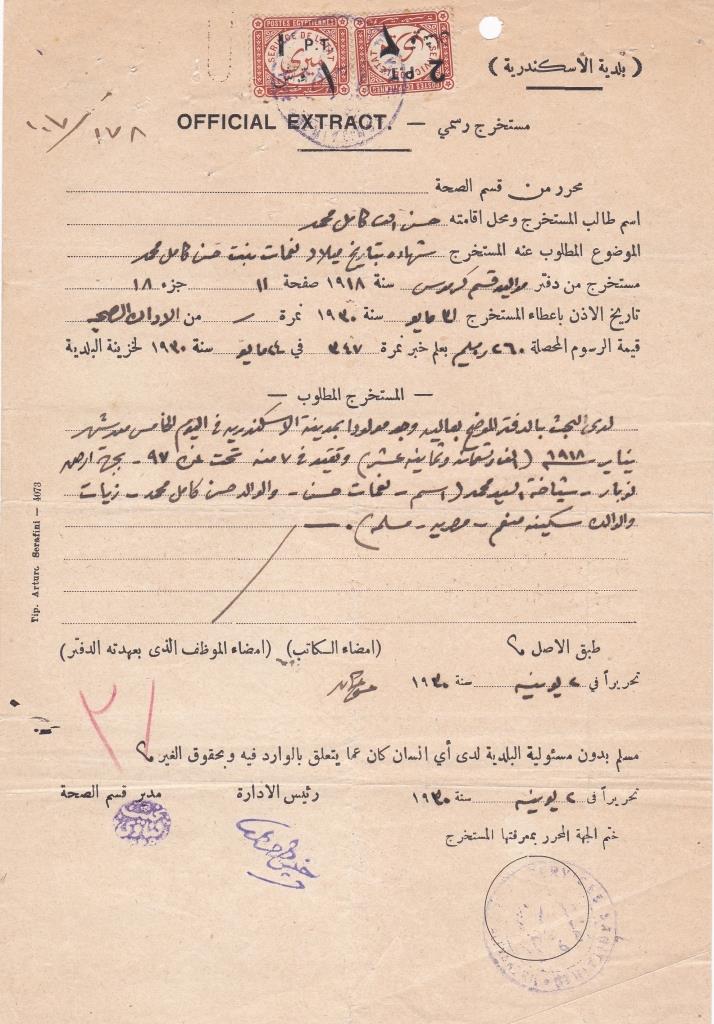 POSTES EGYPTIENNES
SERVICE DE L'ETAT
1 P.T.
ميرى
١
POSTES EGYPTIENNES
SERVICE DE L'ETAT
2 P.T.
ميرى
٢
( بلدية الأسكندرية )
OFFICIAL EXTRACT. — مستخرج رسمي
محرر من قسم الصحة
اسم طالب المستخرج ومحل اقامته حسن افندى كامل محمد
الموضوع المطلوب عنه المستخرج شهاده بتاريخ ميلاد نعمات بنت حسن كامل محمد
مستخرج من دفتر مواليد قسم كرموس سنة ١٩١٨ صفحة ١١ جزء ١٨
تاريخ الاذن باعطاء المستخرج ٣١ مايو سنة ١٩٣٠ نمرة من الادارة الصحية
قيمة الرسوم المحصلة ٢٦٠ مليم بعلم خبر نمرة ٣٤٧ في مايو سنة ١٩٣٠ لخزينة البلدية
— المستخرج المطلوب —
لدى البحث بالدفتر الموضح بعاليه وجد مولودا بمدينة الاسكندريه في اليوم الخامس من شهر
يناير ١٩١٨ (الف وتسعمائة وثمانية عشر) وتقيد في ٧ منه تحت نمرة ٩٧ - بجهة ارض
نوبار - شياخة السيد محمد (اسم - نعمات حسن - والوالد حسن كامل محمد - زيات
والوالده سكينه - مصريه - مسلمه)
طبق الاصل
(امضاء الكاتب) (امضاء الموظف الذى بعهدته الدفتر)
تحريراً فى ٢ يونيه سنة ١٩٣٠
مسلم بدون مسئولية البلدية لدى أي انسان كان عما يتعلق بالوارد فيه وبحقوق الغير
تحريراً فى ٢ يونيه سنة ١٩٣٠ رئيس الادارة مدير قسم الصحة
ختم الجهة المحرر بمعرفتها المستخرج
Tip. Arturo Serafini — 4073